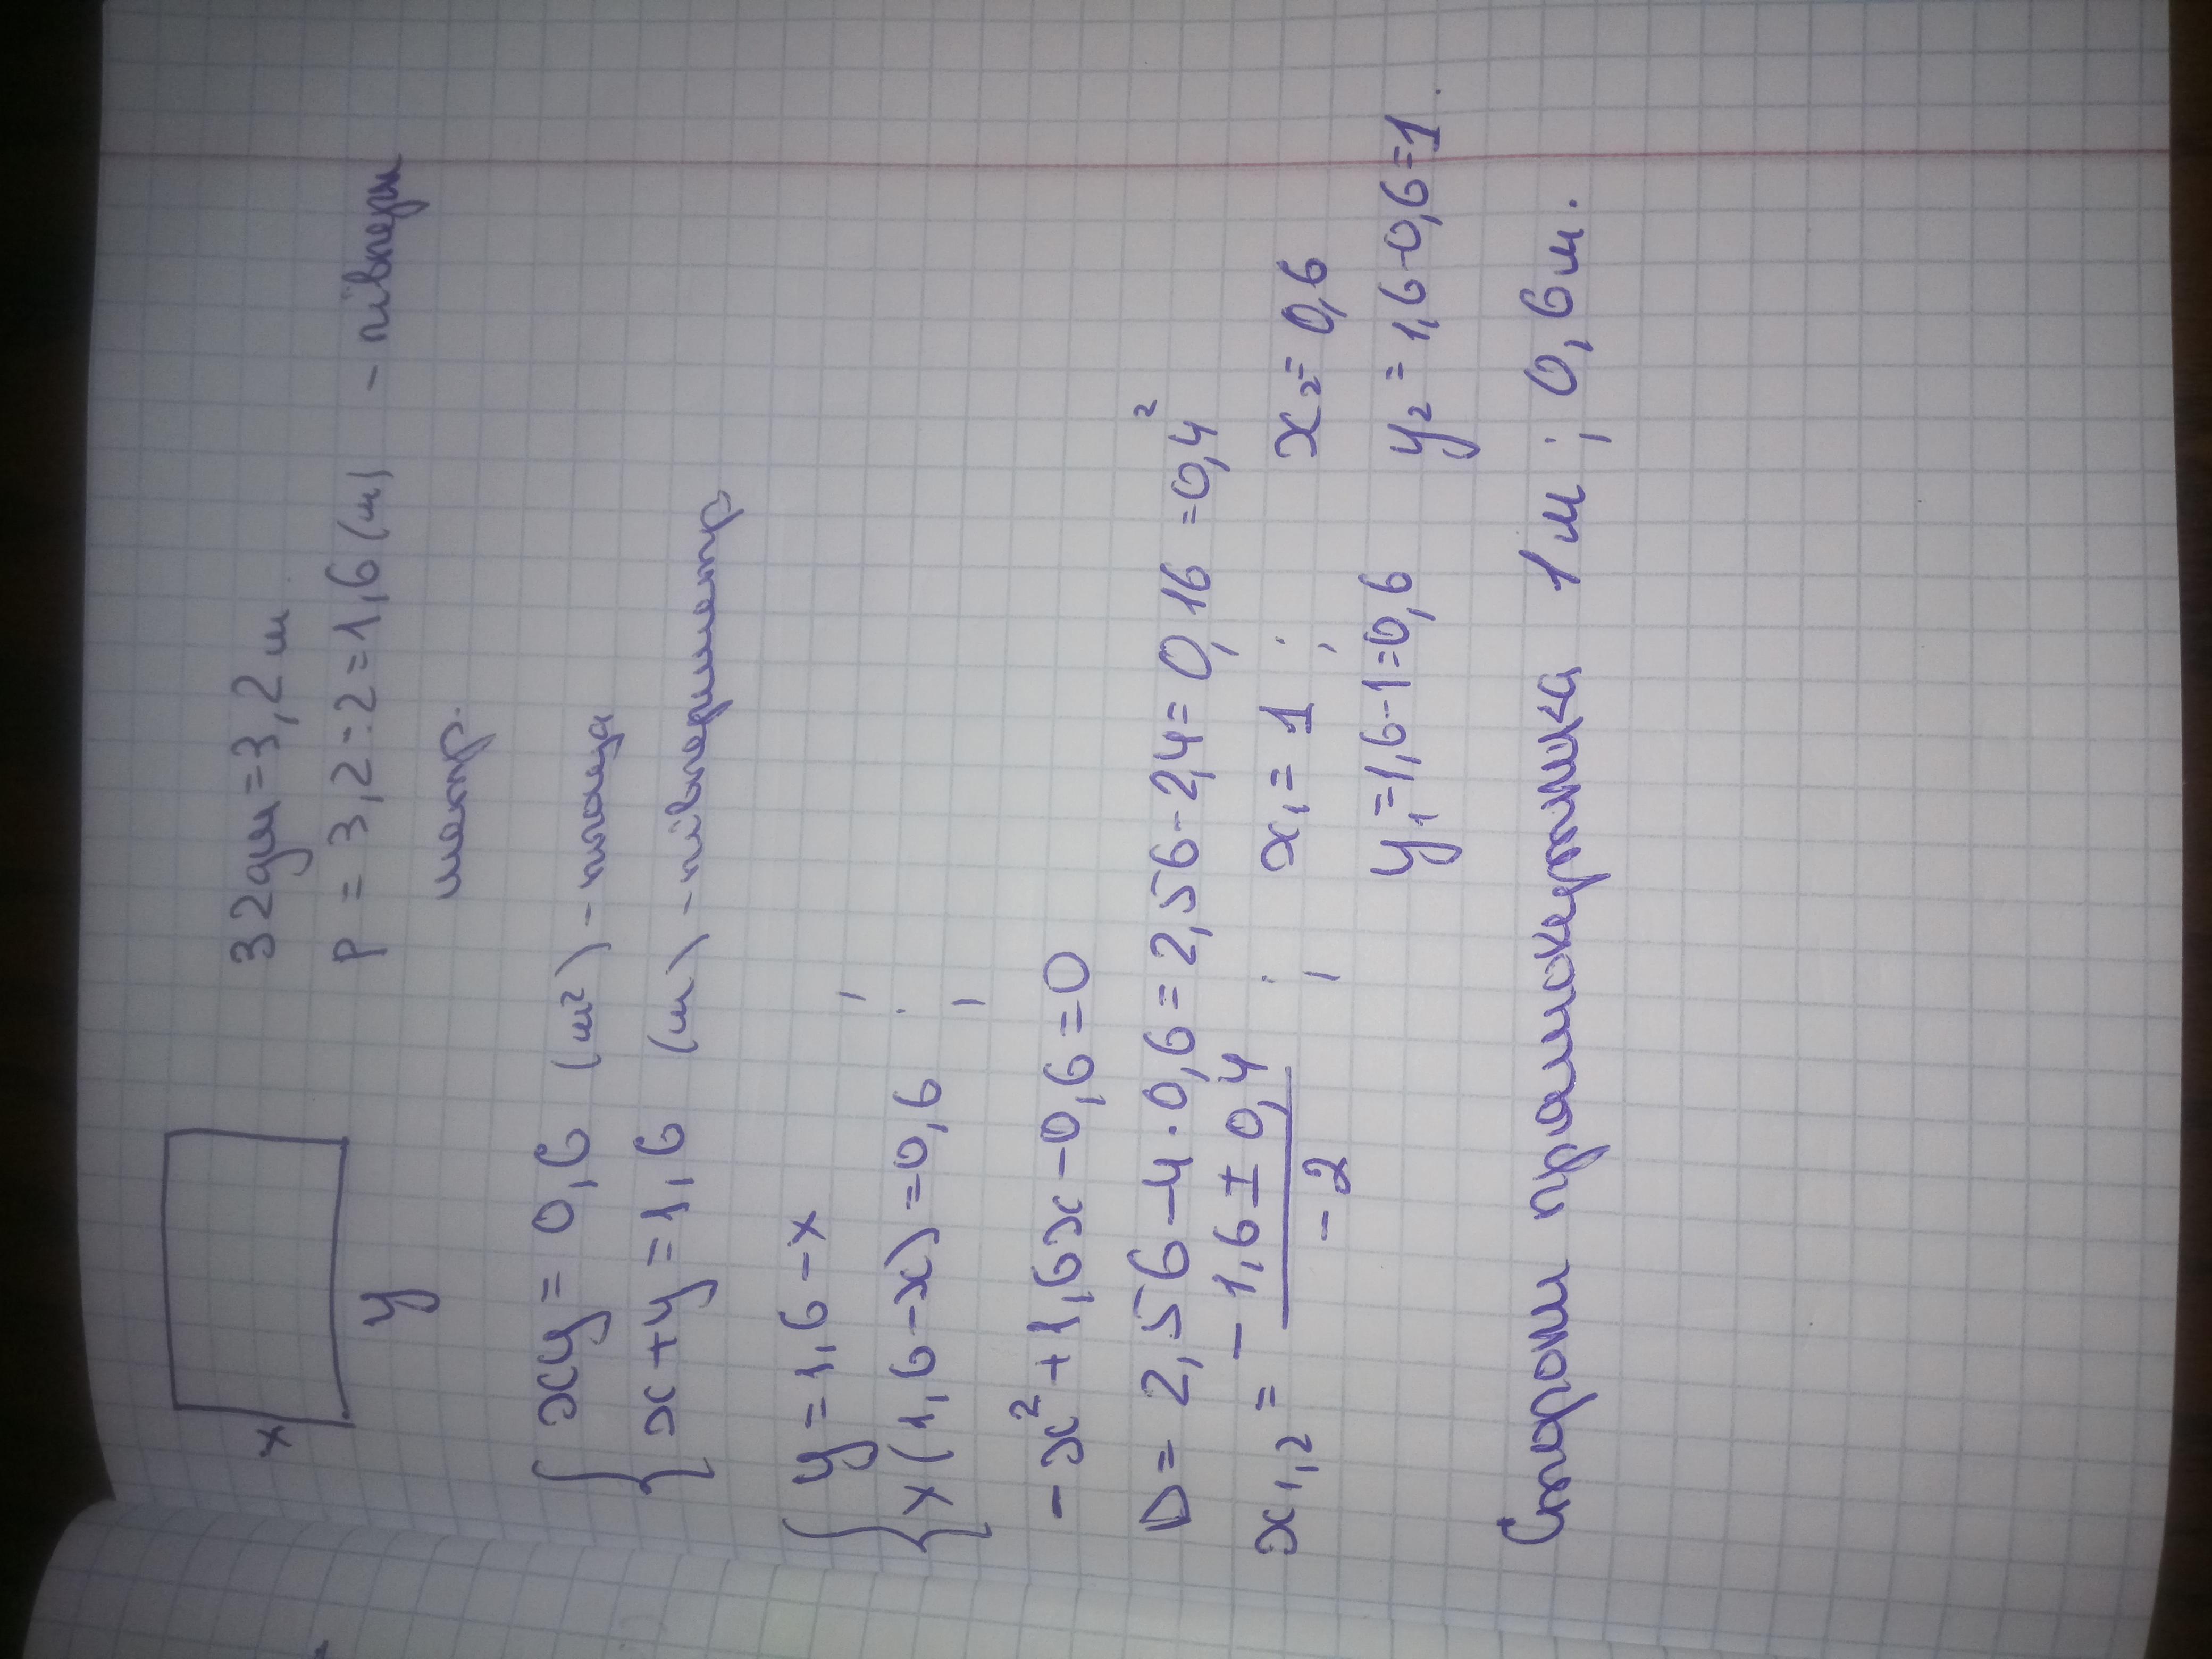 32дм=3,2м
P = 3,2:2=1,6(м) - півпери
метр.
x
y
{ xy = 0,6 (м²) - площа
x+y=1,6 (м) - півпериметр
{ y=1,6-x ;
x(1,6-x)=0,6 ;
-x²+1,6x-0,6=0
D= 2,56-4·0,6=2,56-2,4=0,16=0,4²
x₁,₂ = -1,6±0,4 / -2 ; x₁=1 ; x₂=0,6
y₁=1,6-1=0,6 y₂=1,6-0,6=1.
Сторони прямокутника 1м; 0,6м.